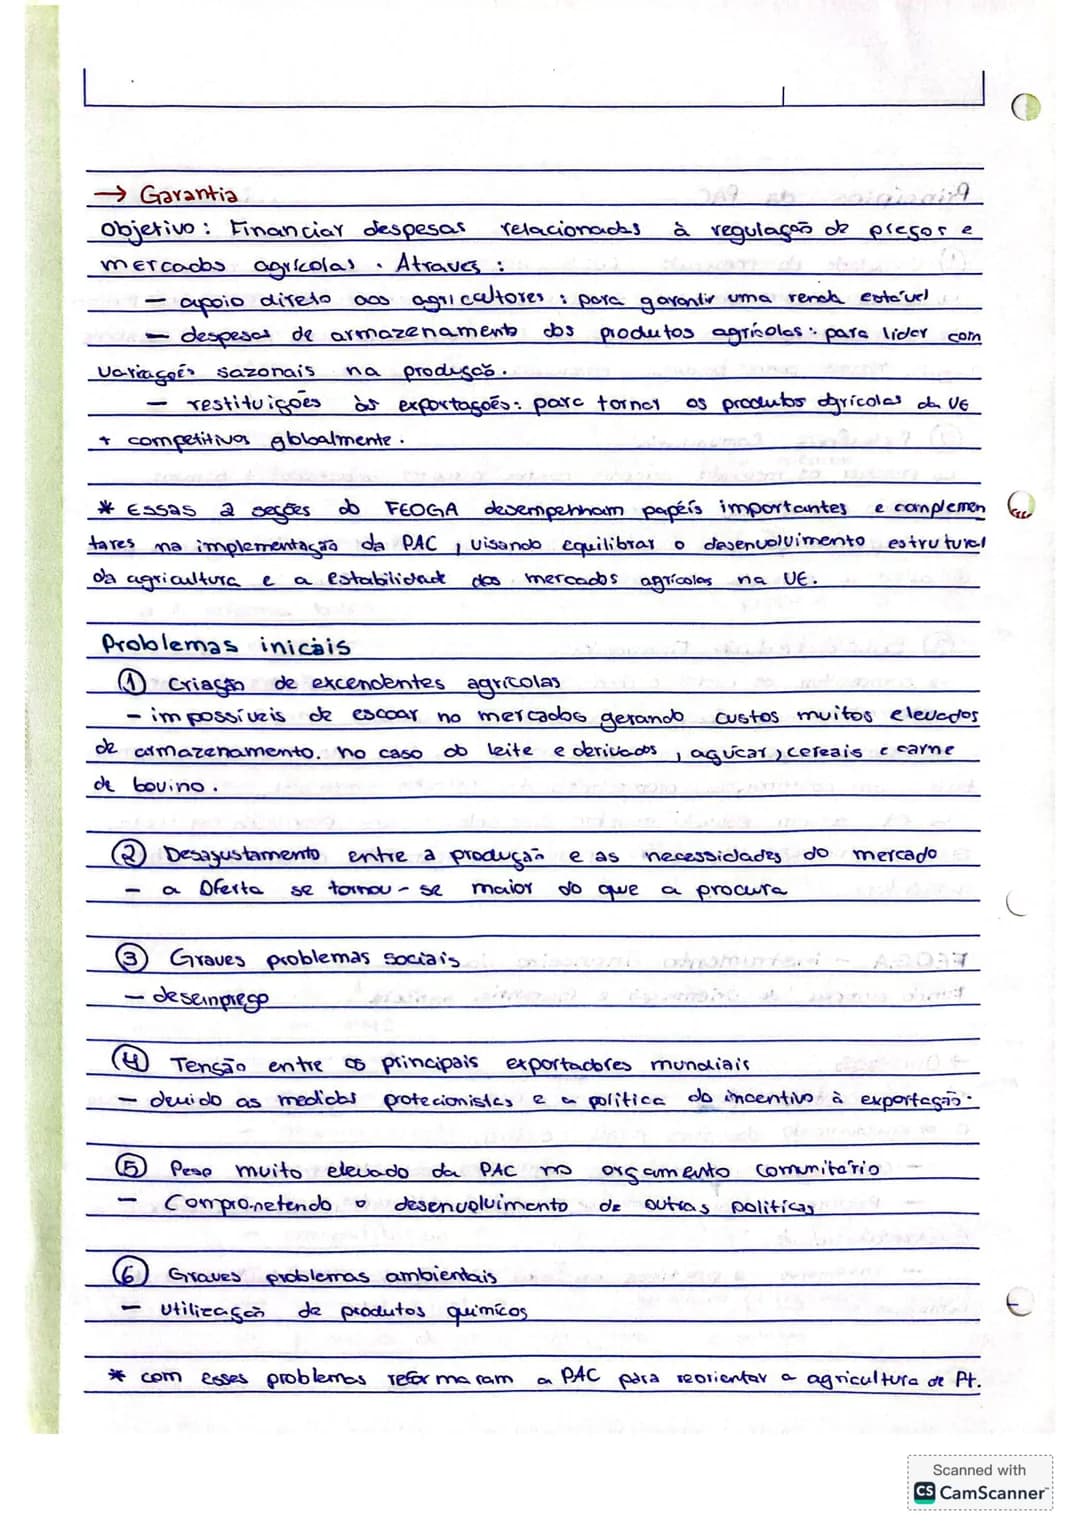 → Garantia
Objetivo: Financiar despesas relacionadas à regulação de preços e
mercados agrícolas. Atraves:
- apoio direto aos agricultores: para garantir uma renda estável
- despesas de armazenamento dos produtos agrícolas: para lidar com
variações sazonais na produção.
- restituições às exportações: para tornar os produtos agrícolas da UE
+ competitivos globalmente.
* Essas 2 seções do FEOGA desempenham papéis importantes e complemen
tares na implementação da PAC, visando equilibrar o desenvolvimento estrutural
da agricultura e a estabilidade dos mercados agrícolas na UE.
Problemas iniciais
① Criação de excendentes agrícolas
- impossíveis de escoar no mercados gerando custos muitos elevados
de armazenamento. no caso do leite e derivados, açúcar, cereais e carne
de bovino.
② Desajustamento entre a produção e as necessidades do mercado
- a Oferta se tornou-se maior do que a procura
③ Graves problemas sociais
- desemprego
④ Tensão entre os principais exportadores mundiais
- devido as medidas protecionistas e a política do incentivo à exportação.
⑤ Peso muito elevado da PAC no orçamento comunitário
- Comprometendo o desenvolvimento de outras políticas
⑥ Graves problemas ambientais
- Utilização de produtos químicos
* com esses problemas reformaram a PAC para reorientar a agricultura de Pt.
Scanned with
CS CamScanner